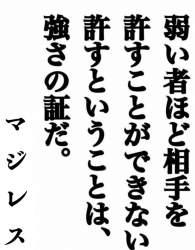 弱い者ほど相手を
許すことができない
許すということは、
強さの証だ。
マジレス